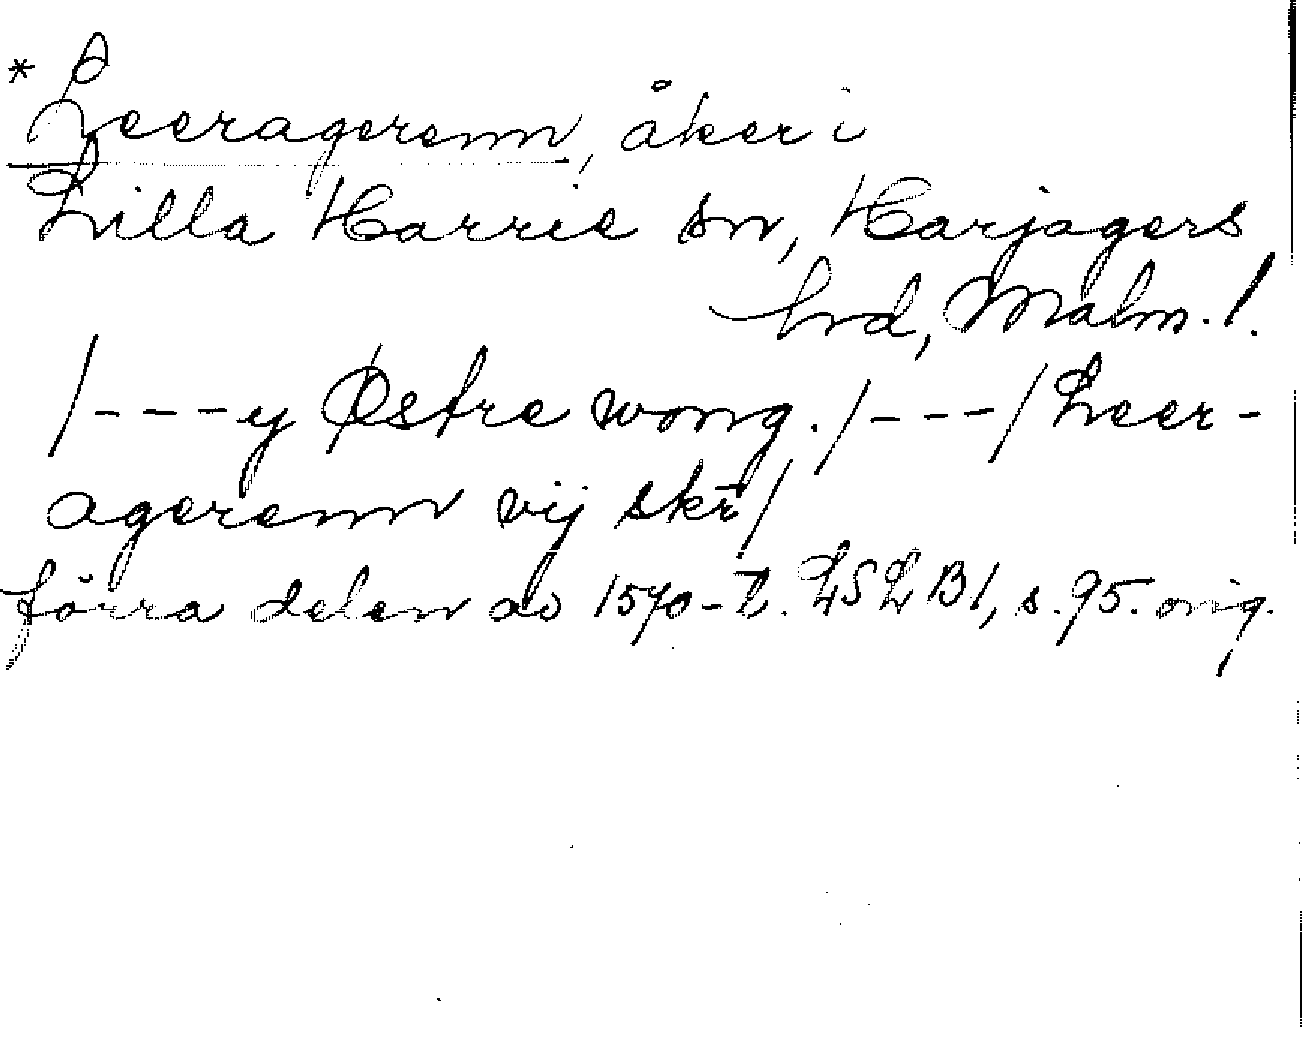 * Leeragerenn, åker i
Lilla Harrie sn, Harjagers
hrd, Malm. l.
/---y Østre wong. /---/ Leer-
agerenn vij skr̄/
förra delen av 1570-t. LSLB1, s. 95. orig.